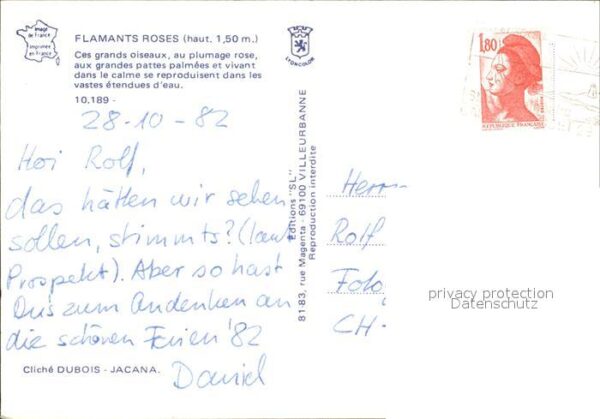 Image
de France
Imprimée
en France
FLAMANTS ROSES (haut. 1,50 m.)
Ces grands oiseaux, au plumage rose,
aux grandes pattes palmées et vivant
dans le calme se reproduisent dans les
vastes étendues d'eau.
10.189 -
LYONCOLOR
28-10-82
Hoi Rolf,
das hätten wir sehen
sollen, stimmts? (laut
Prospekt). Aber so hast
Du's zum Andenken an
die schönen Ferien '82
Daniel
Cliché DUBOIS - JACANA.
Editions "SL"
81-83, rue Magenta - 69100 VILLEURBANNE
Reproduction interdite
1,80
REPUBLIQUE FRANÇAISE
Herrn
Rolf
Foto
CH-
privacy protection
Datenschutz